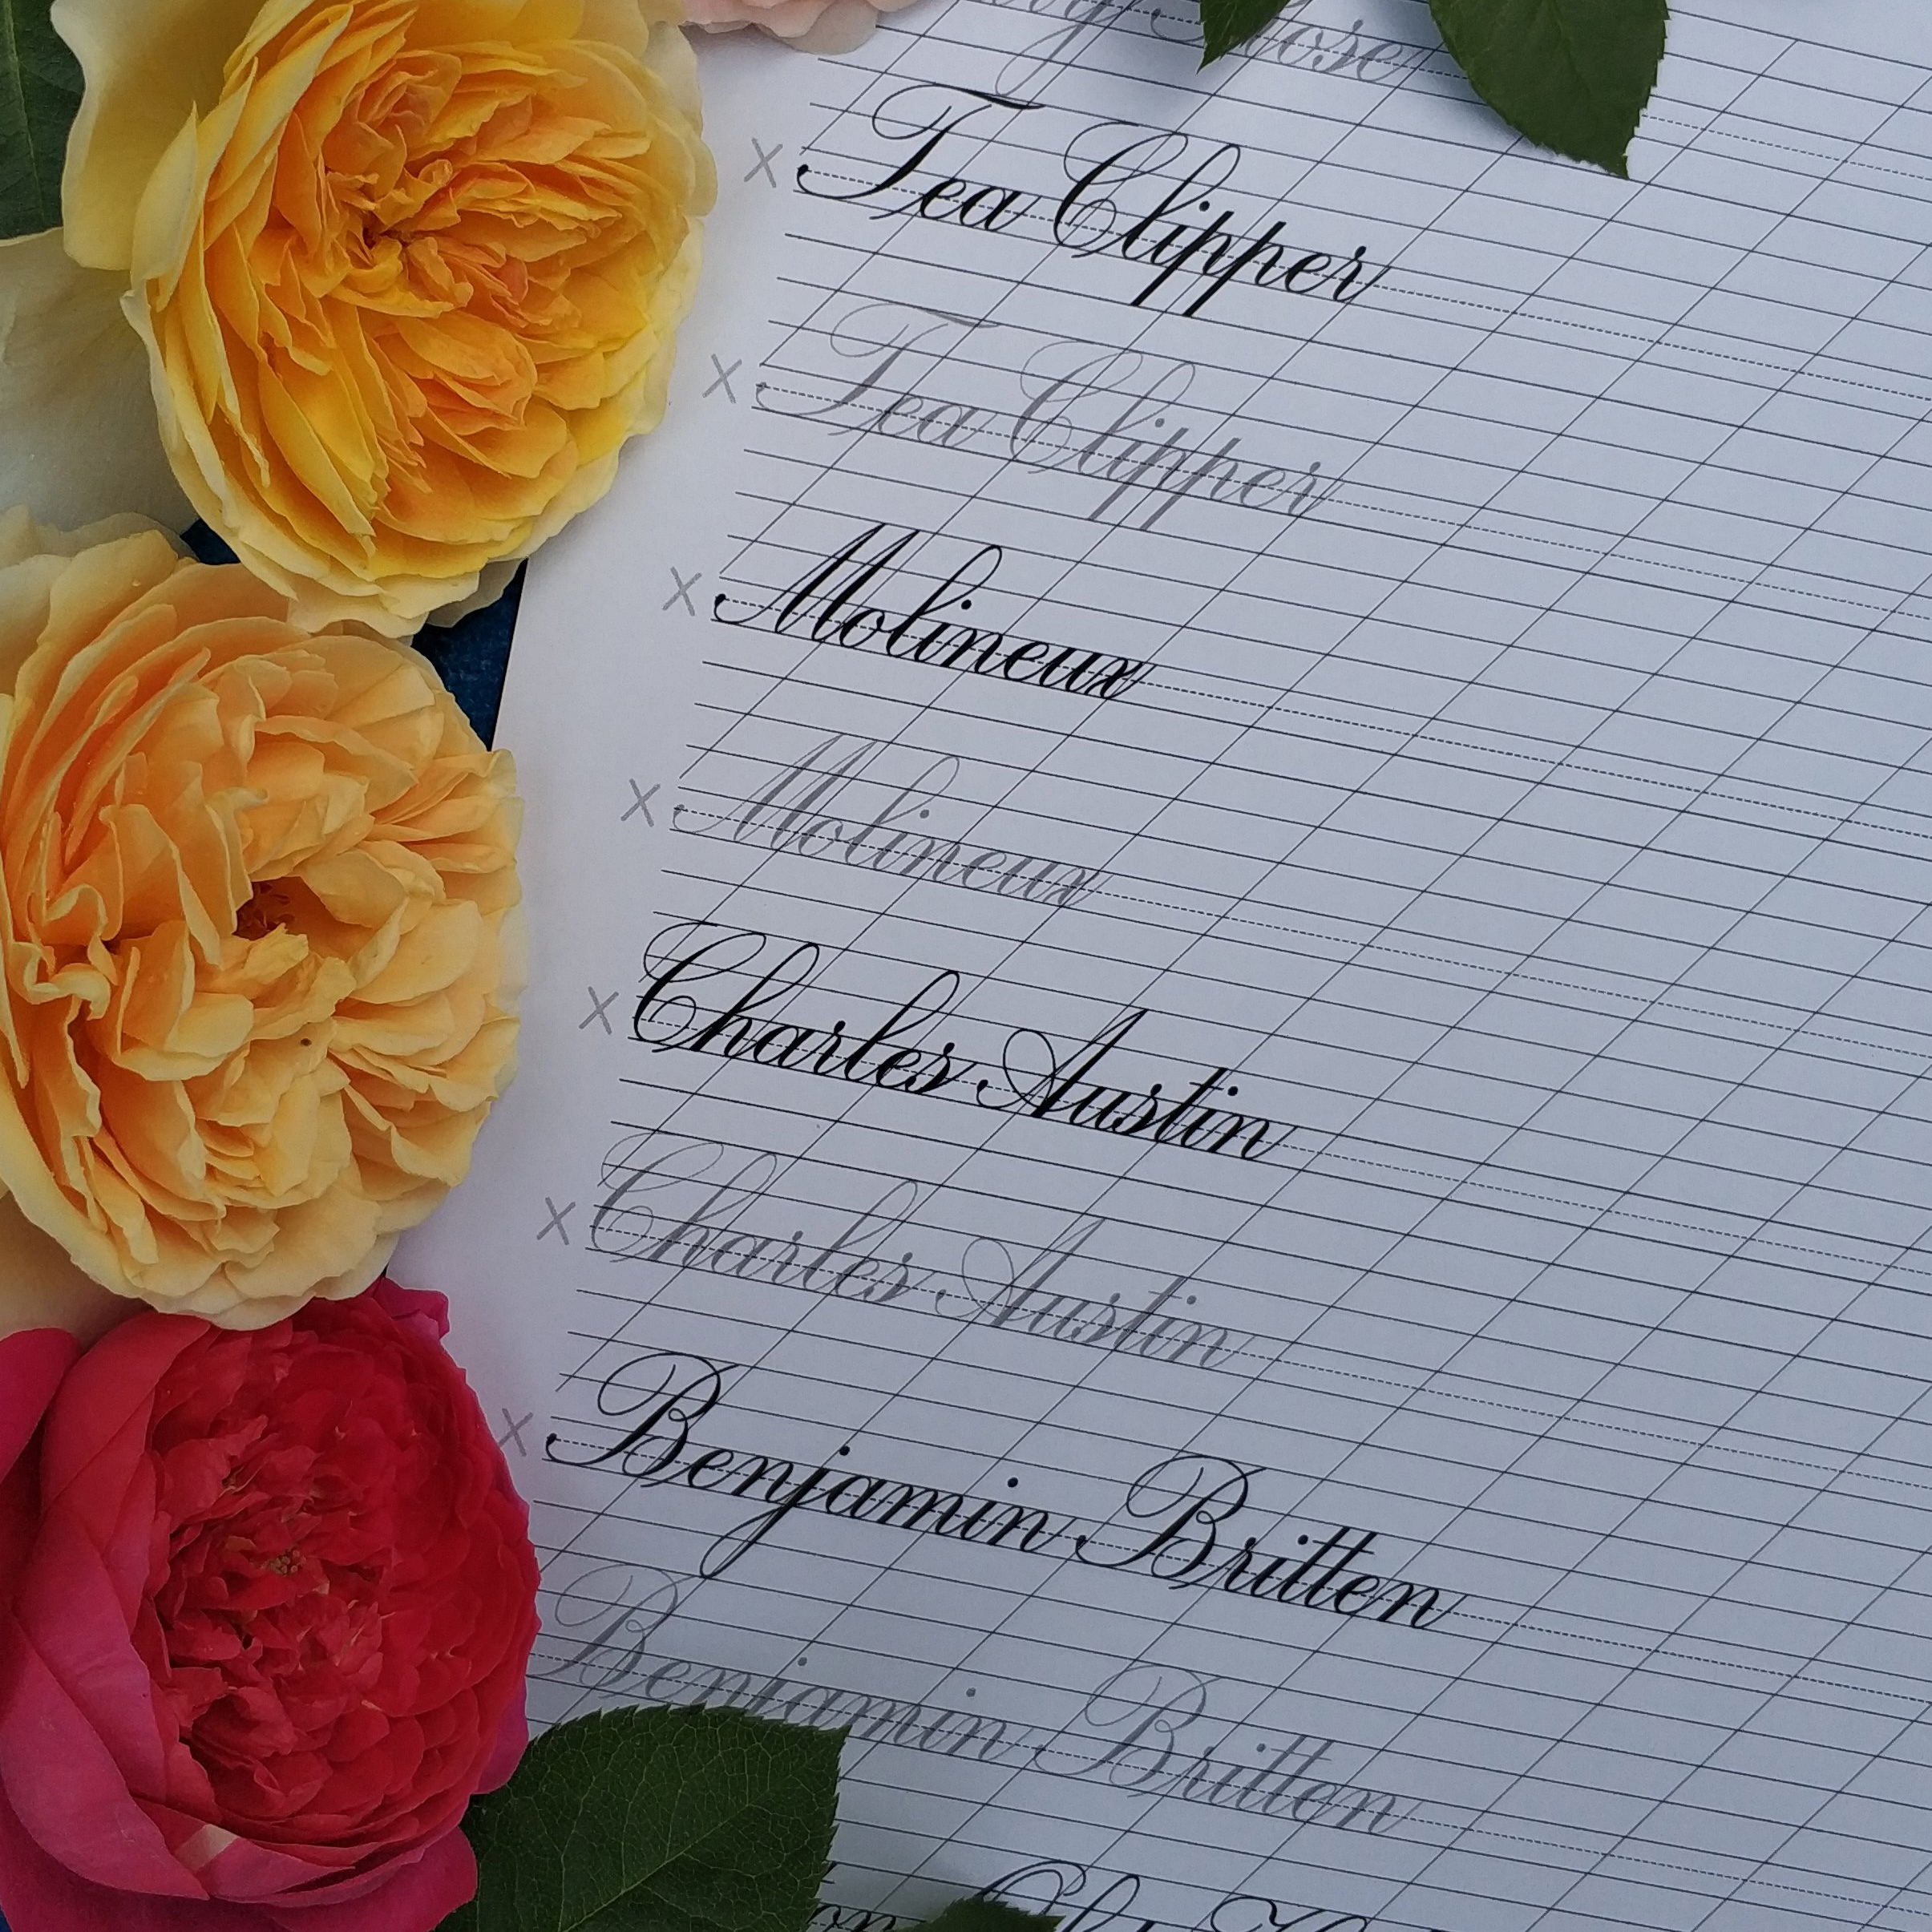 Rose
x Tea Clipper
x Tea Clipper
x Molineux
x Molineux
x Charles Austin
x Charles Austin
x Benjamin Britten
Benjamin Britten